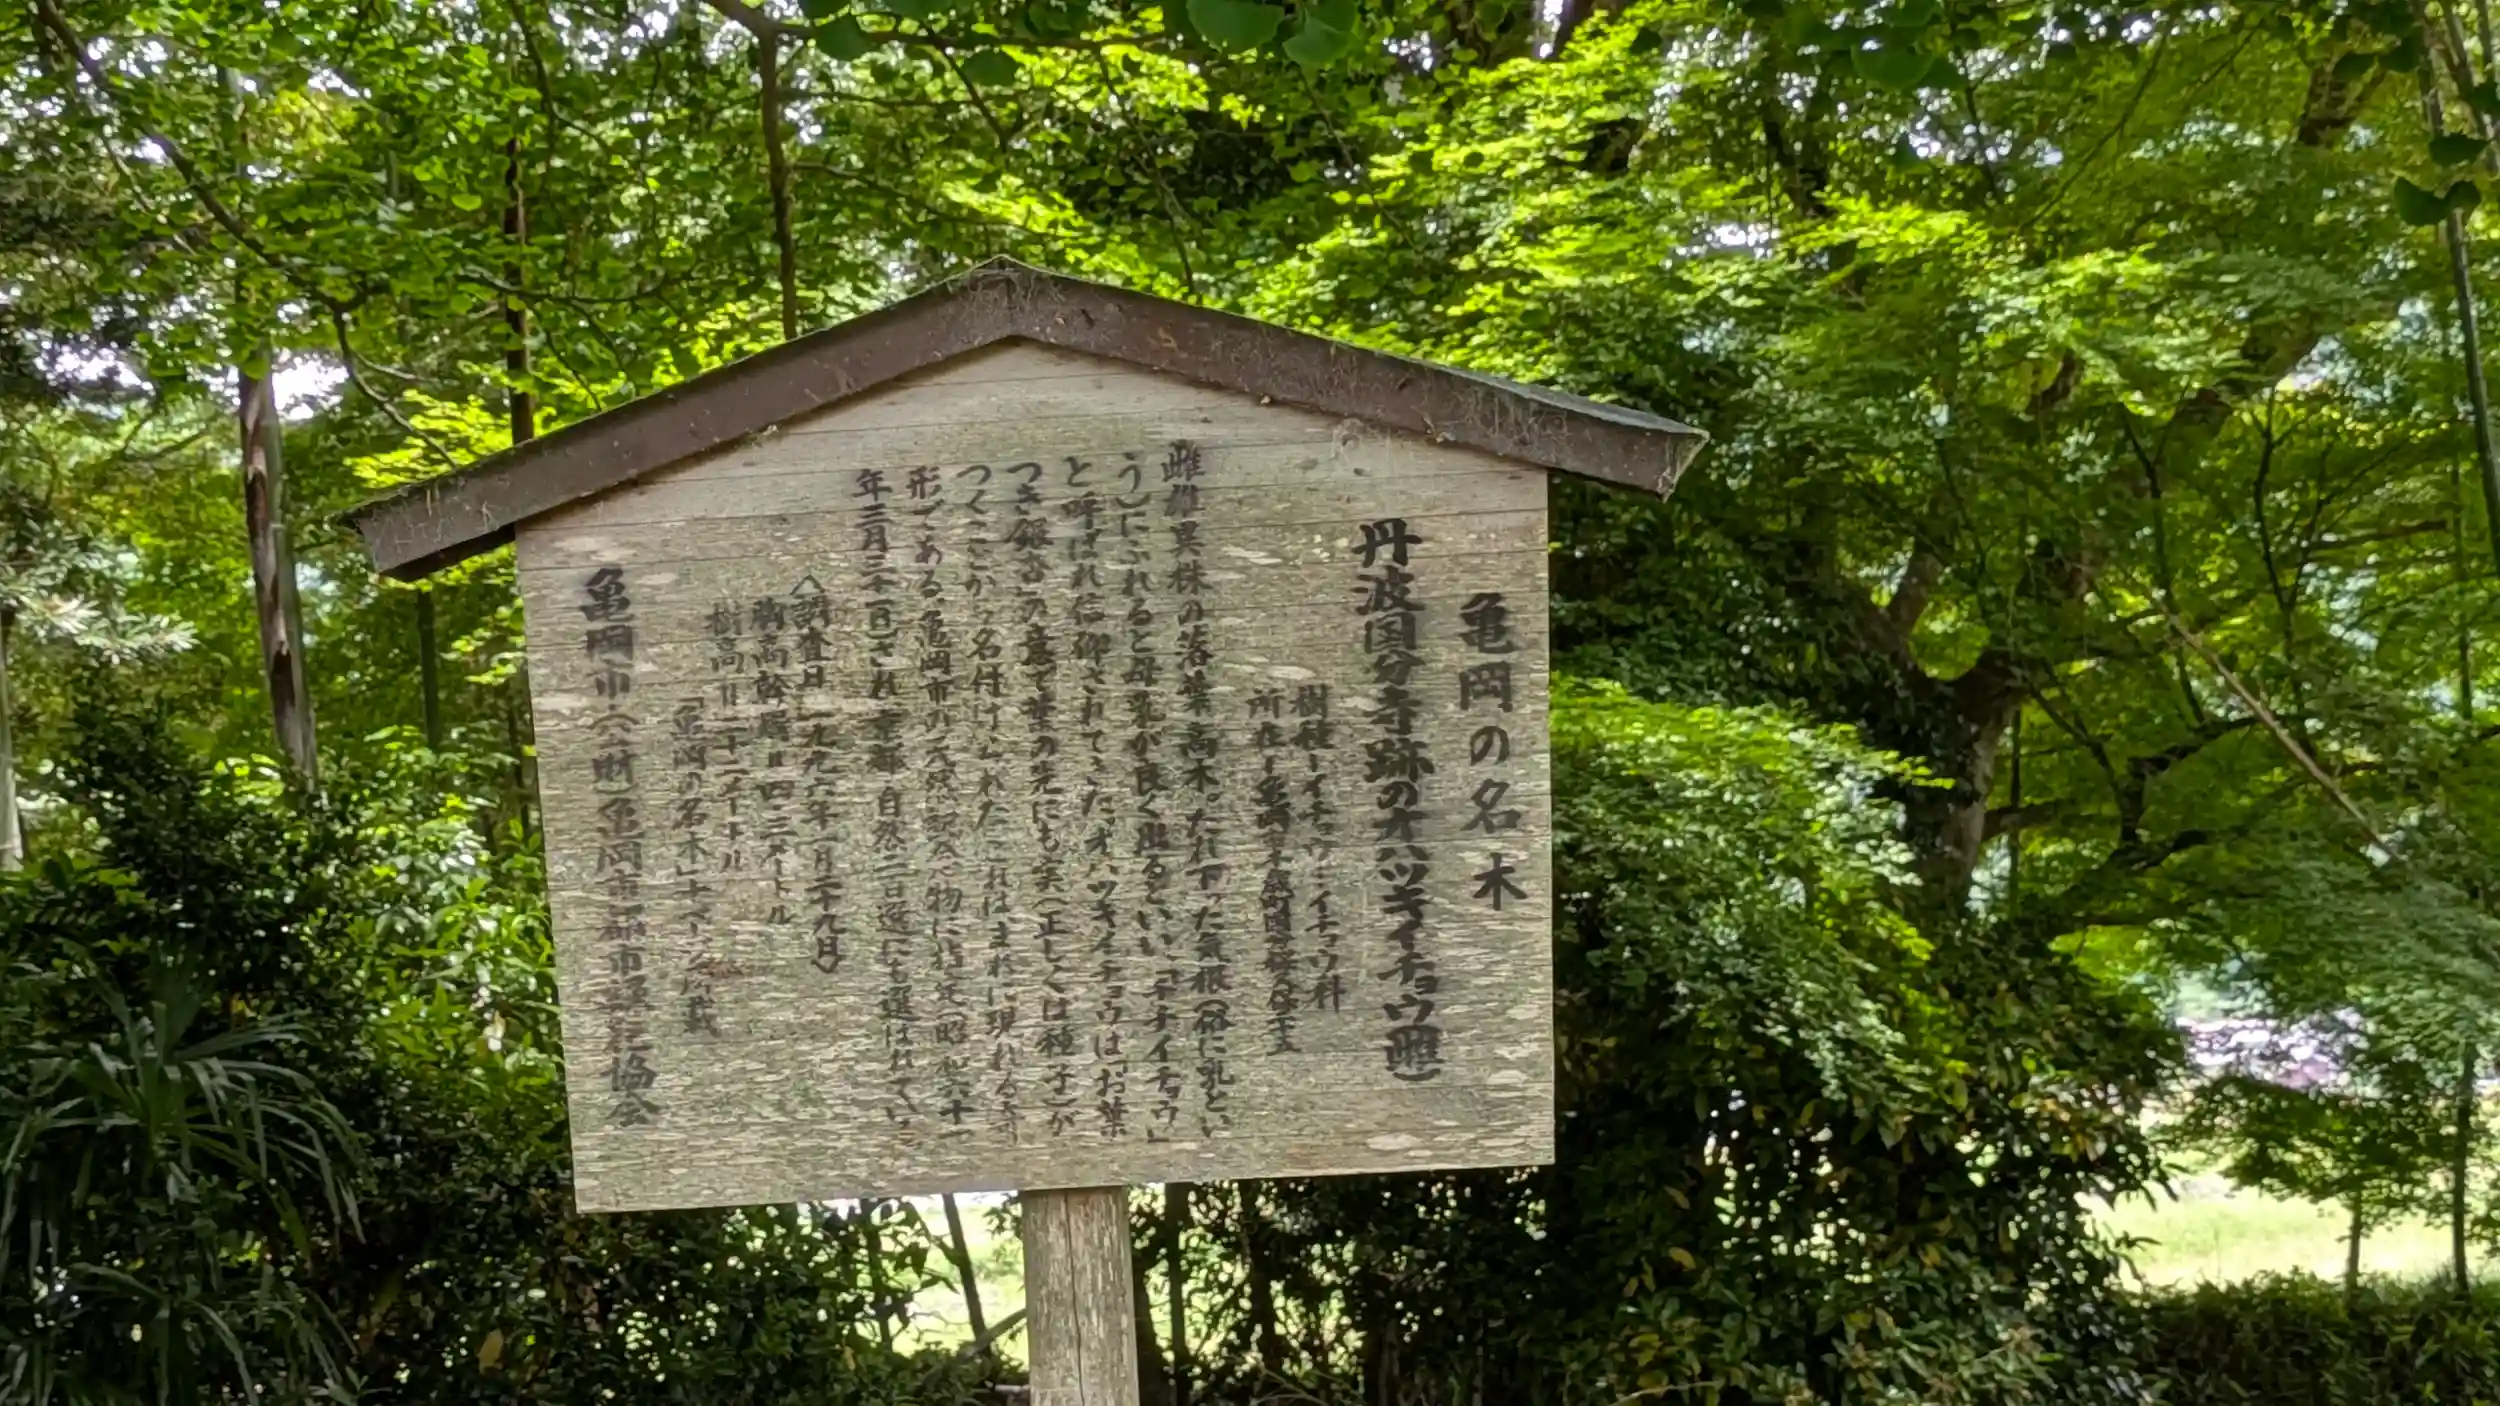 亀岡の名木
丹波国分寺跡のオハツキイチョウ(雌)
樹種-イチョウ・イチョウ科
所在-亀岡市千歳町国分
雌雄異株の落葉高木。たれ下った気根(俗に乳とい
う)にふれると母乳が良く出るといい、「チチイチョウ」
と呼ばれ信仰されてきた。オハツキイチョウは「お葉
つき銀杏」の意で葉の先にも実(正しくは種子)が
つくことから名付けられた。これはまれに現れる奇
形である。亀岡市の天然記念物に指定(昭和六十一
年三月三十一日)され、京都の自然二百選にも選ばれてい
〈調査日 一九九六年一月二十九日〉
胸高幹周=四・三メートル
樹高=二十二メートル
「亀岡の名木」十ページ所載
亀岡市・(財)亀岡市都市緑花協会